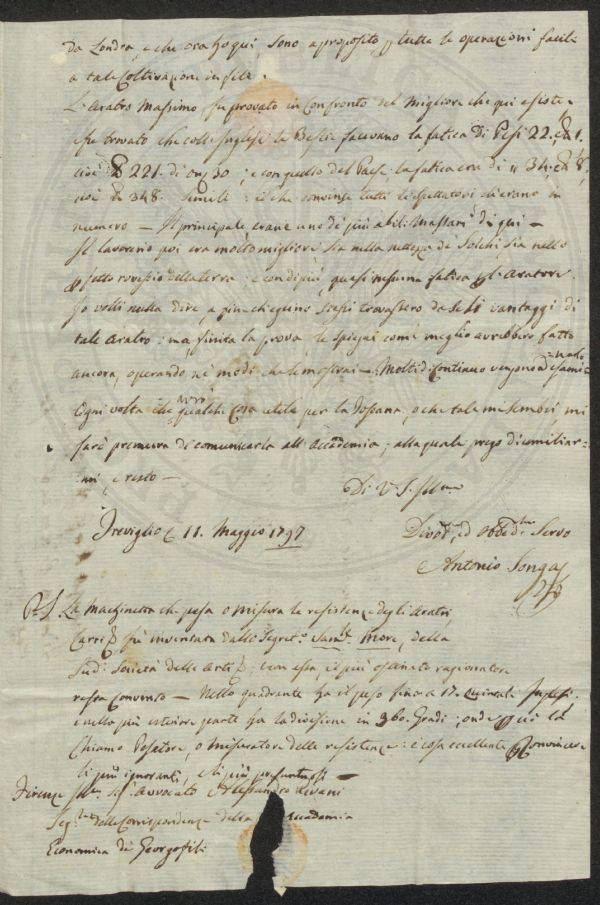 da Londra, e che ora ho qui, sono a proposito p tutte le operazioni facili
a tale Coltivazione in file.
L'Aratro Massimo fu provato in Confronto del migliore che qui esiste
e fu trovato che colli Inglesi le Bestie facevano la fatica di Pesi 22. 1.
cioè 221. di on. 30; e con quello del Paese la fatica era di 34. 8.
cioè 348. simili: il che convinse tutti li spettatori ch'erano in
numero — Il principale era uno di più abili Massari di qui —
Il lavorio poi era molto migliore, sia nella nettezza de Solchi, sia nello
rovescio della terra: e con di più, quasi nessuna fatica p l'Aratore
Io volli nulla dire a fine che eglino stessi trovassero da se li vantaggi di
tale Aratro: ma finita la prova le spiegai come meglio avrebbero fatto
ancora, operando ne' modi che le mostrai — Molti di Continuo vengono ad esami=
=narlo
Ogni volta che avrò qualche Cosa utile per la Toscana, o che tale mi sembri, mi
farò premura di comunicarla all'Accademia; alla quale prego di umiliar=
=mi, e resto —
Di V. S. Illma
Treviglio 11. Maggio 1797
Divo.mo ed Obb.mo Servo
Antonio Songa
P. S. La Macchinetta che pesa o misura le resistenze degli Aratri,
Carri fu inventata dallo Segret.o Sam.l More, della
Sud.a Società delle Arti; con essa, il più ostinato ragionatore
resta Convinto — Nello quadrante ha il peso fino a 17. Quintali Inglesi,
e nella più esteriore parte ha la divisione in 360. Gradi; onde ciò la
Chiamo Pesatore, o misuratore delle resistenze: è cosa eccellente p Convincere
li più ignoranti, e li più presuntuosi —
Firenze Ill. Sig. Avvocato Alessandro Rivani
Seg.rio delle Corrispondenze della Accademia
Economica di Georgofili